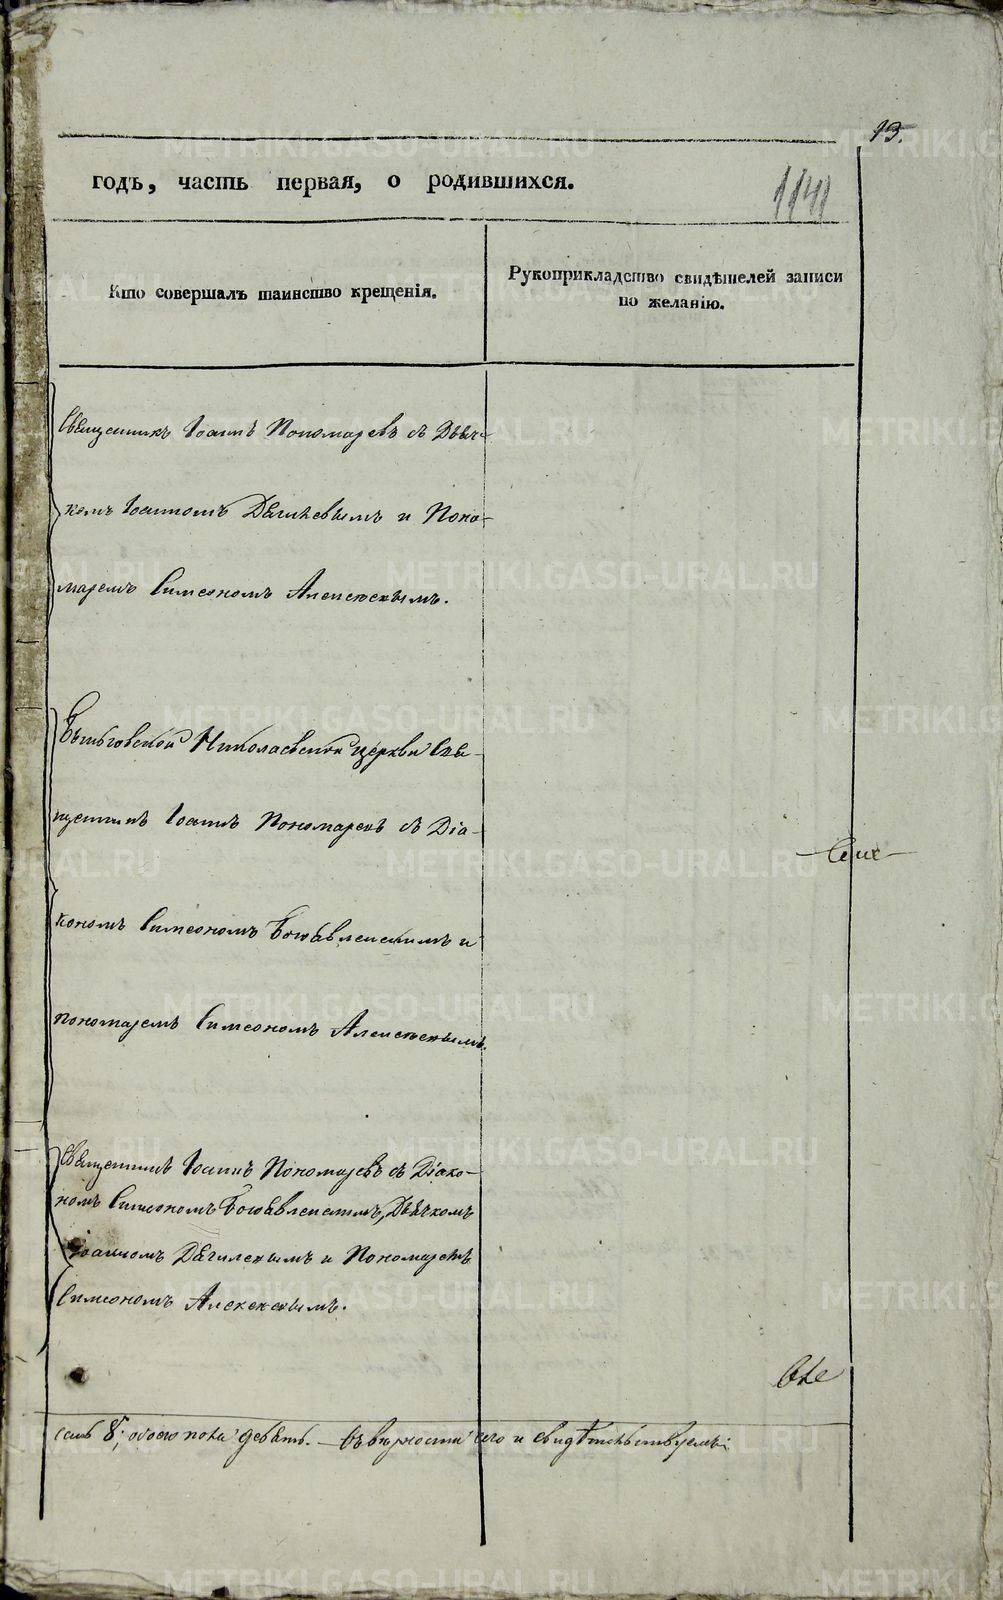 13.
годъ, часть первая, о родившихся.
1141
Кто совершалъ таинство крещенія.
Рукоприкладство свидѣтелей записи
по желанію.
Священникъ Іоаннъ Пономаревъ съ Дьяч-
комъ Іоанномъ Дягилевымъ и Поно-
маремъ Симеономъ Алексеевымъ.
Николаевской церкви Свя-
щенникъ Іоаннъ Пономаревъ съ Діа-
кономъ Симеономъ Богоявленскимъ и
пономаремъ Симеономъ Алексеевымъ.
Священникъ Іоаннъ Пономаревъ съ Діако-
номъ Симеономъ Богоявленскимъ, Дьячкомъ
Іоанномъ Дягилевымъ и Пономаремъ
Симеономъ Алексеевымъ.
обоего пола девять. – Въ вѣрности сего и свидѣтельствуемъ:
METRIKI.GASO-URAL.RU